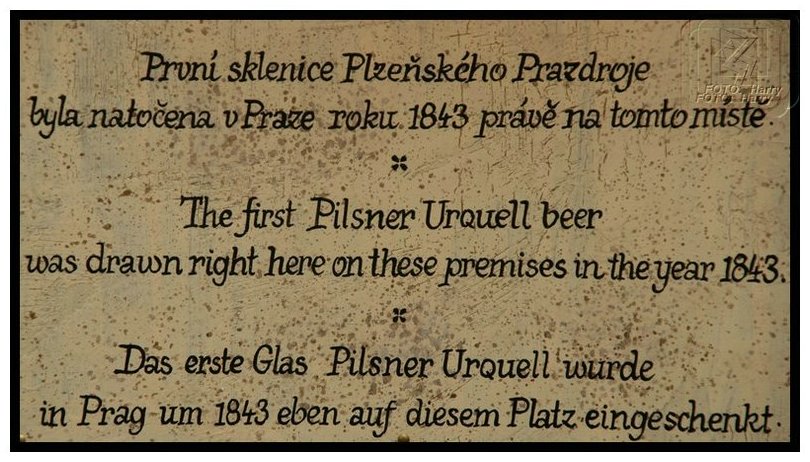 První sklenice Plzeňského Prazdroje
byla natočena v Praze roku 1843 právě na tomto místě.
The first Pilsner Urquell beer
was drawn right here on these premises in the year 1843.
Das erste Glas Pilsner Urquell wurde
in Prag um 1843 eben auf diesem Platz eingeschenkt.
FOTO: Harry
FOTO: Harry